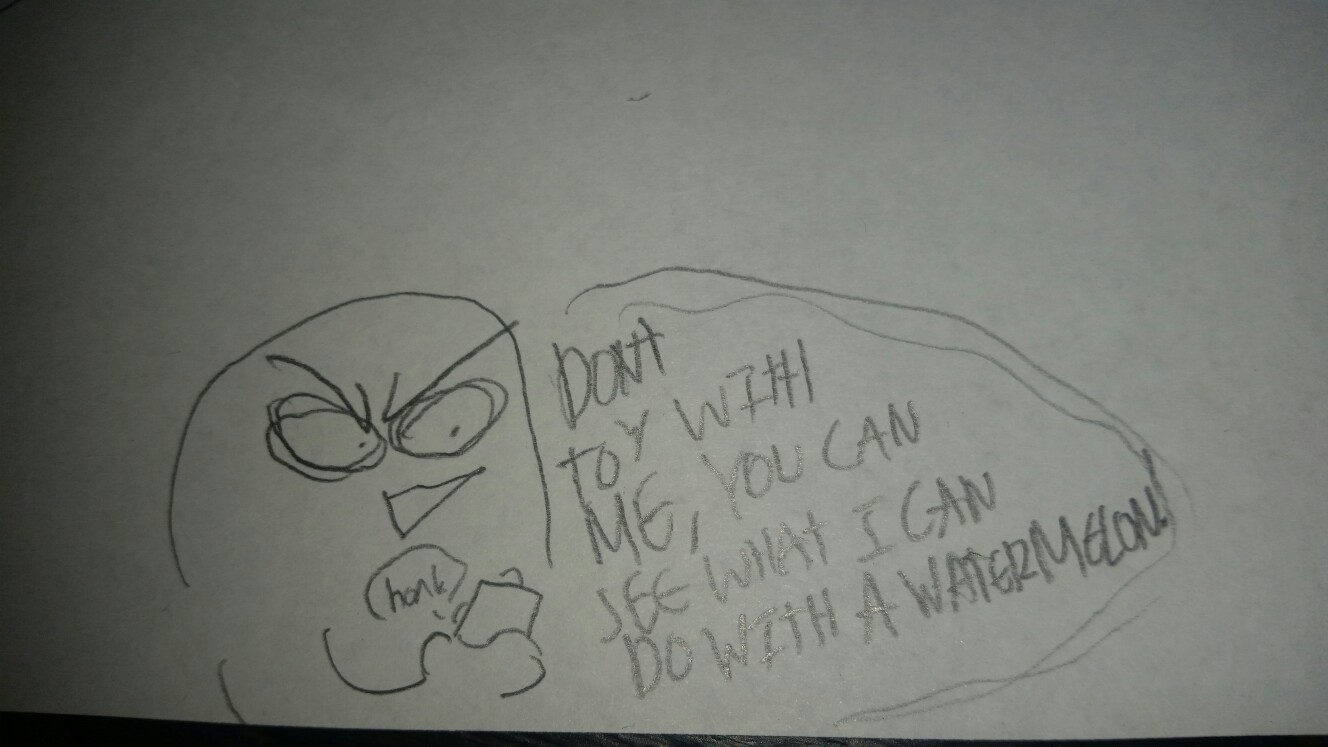 honk
DONT
TOY WITH
ME, YOU CAN
SEE WHAT I CAN
DO WITH A WATERMELON!